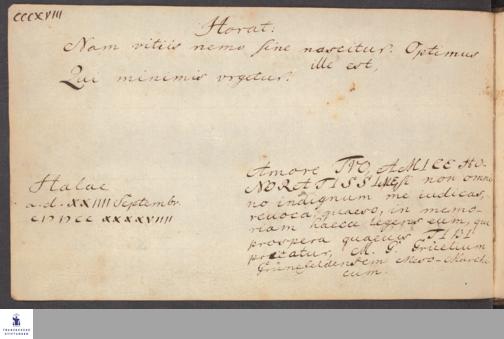 CCCXVIII
Horat:
Nam vitiis nemo sine nascitur: Optimus
ille est,
Qui minimis urgetur.
Halae
a. d. XXIIII Septembr.
CIƆIƆCC XXXXVIIII
Amore TVO, AMICE HO-
NORATISSIME, si non omni-
no indignum me iudicas,
revoca, quaeso, in memo-
riam haecce legens eum, qui
prospera quaevis TIBI
precatur, M. G.
Grünefeldensem Meso-March
cum.
FRANCKESCHE
STIFTUNGEN